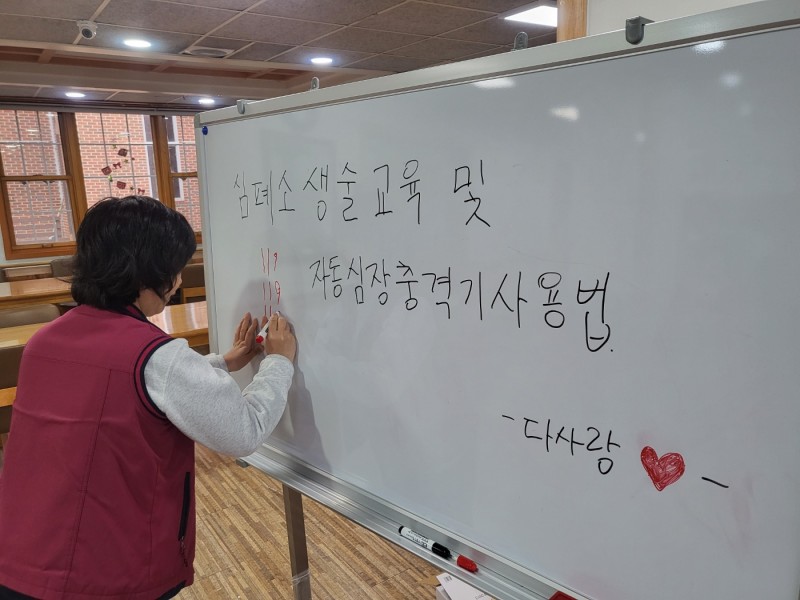 심폐소생술교육 및
119
자동심장충격기사용법.
119
- 다사랑 ♥ -